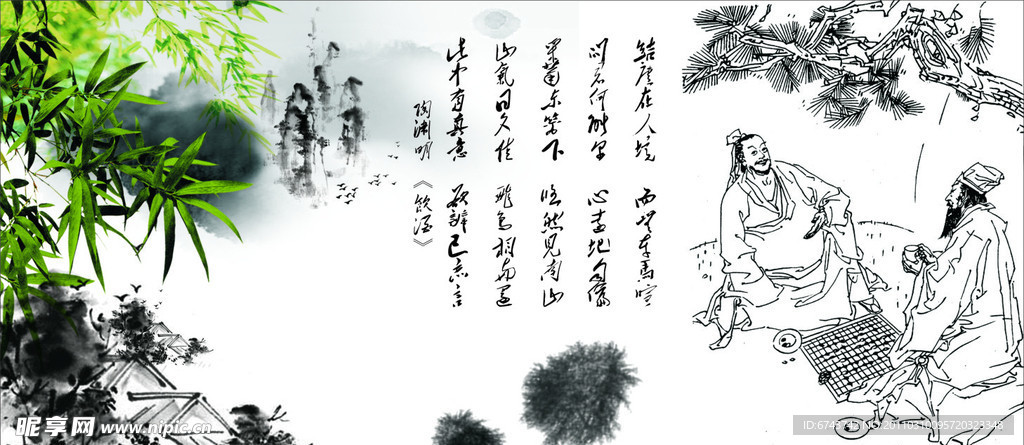 结庐在人境 而无车马喧
问君何能尔 心远地自偏
采菊东篱下 悠然见南山
山气日夕佳 飞鸟相与还
此中有真意 欲辨已忘言
陶渊明《饮酒》
昵享网 www.nipic.cn
ID:6743742 NO:20110310095720323348